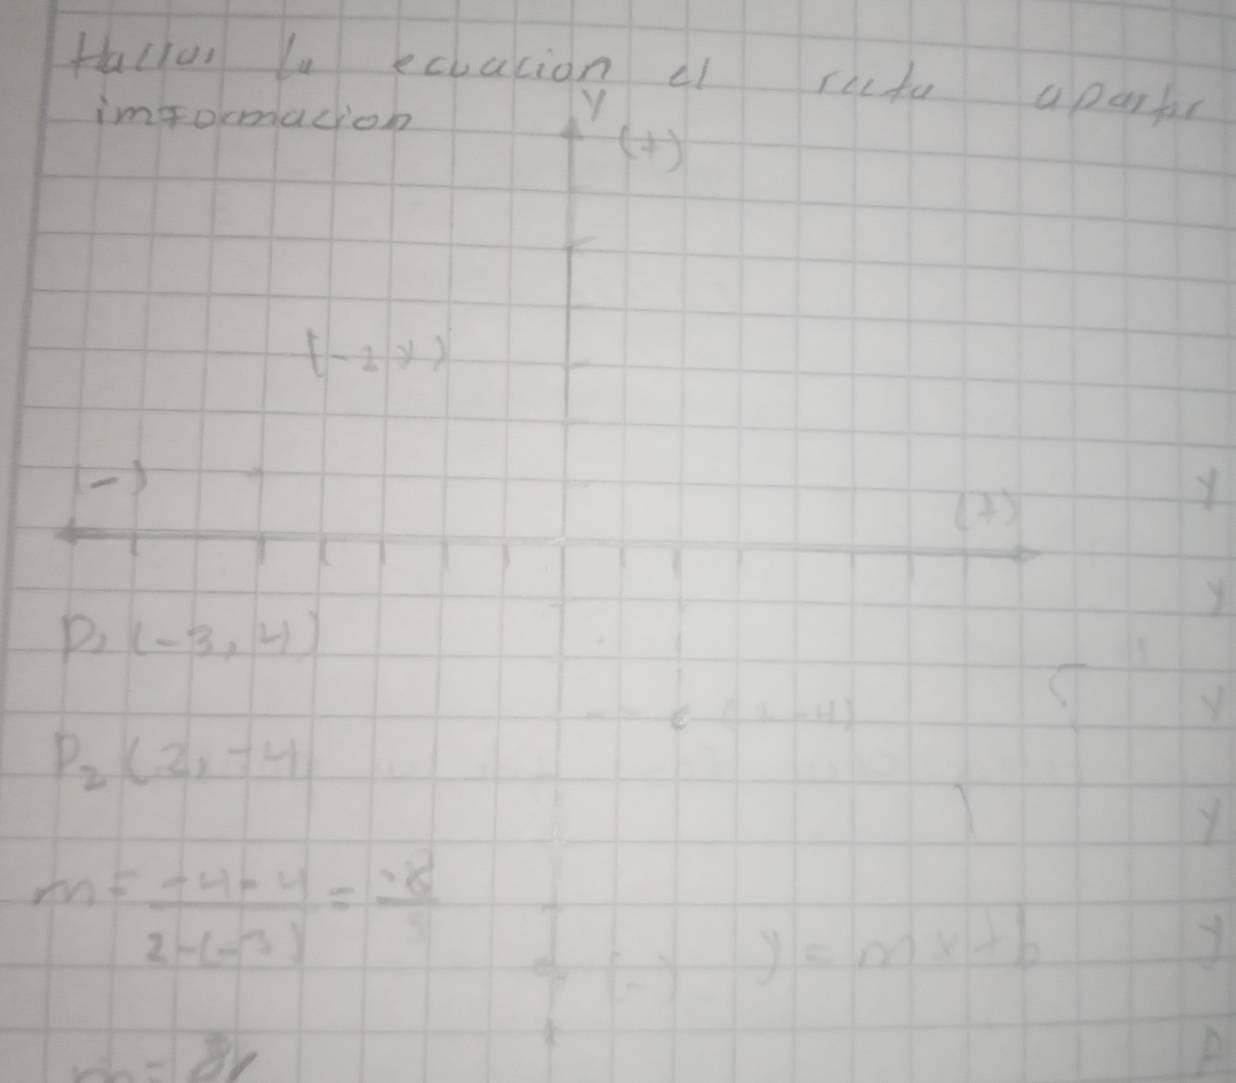 Hallar la ecuacion el recta apartir
informacion
Y
(+)
(-2 y)
(-)
(+)
Y
P1 (-3, 4)
Y
(2 -4)
Y
P2 (2, -4
Y
m = -4-4 / 2-(-3) = -8 / 5
y = mx+b
Y
(-)
m = 8